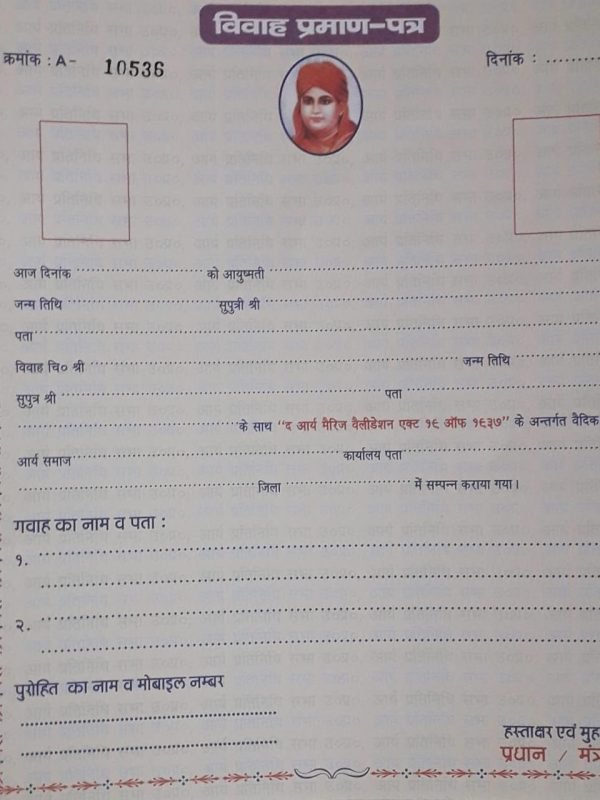 विवाह प्रमाण-पत्र
क्रमांक : A- 10536
दिनांक : .........
आज दिनांक .................... को आयुष्मती ....................
जन्म तिथि .................... सुपुत्री श्री ....................
पता ....................
विवाह चि० श्री .................... जन्म तिथि ....................
सुपुत्र श्री .................... पता ....................
.................... के साथ "द आर्य मैरिज वैलीडेशन एक्ट १९ ऑफ १९३७" के अन्तर्गत वैदिक
आर्य समाज .................... कार्यालय पता ....................
.................... जिला .................... में सम्पन्न कराया गया।
गवाह का नाम व पता :
१. ....................
२. ....................
पुरोहित का नाम व मोबाइल नम्बर
हस्ताक्षर एवं मुह
प्रधान / मंत्र